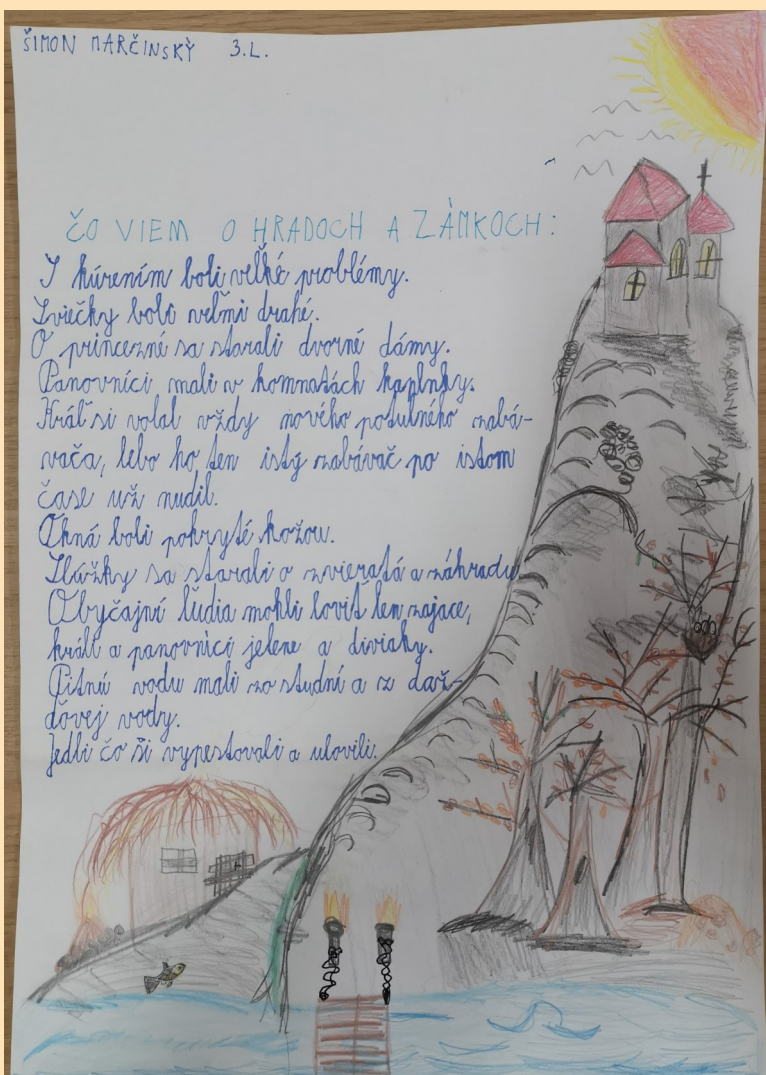 ŠIMON MARČINSKÝ 3.L.
ČO VIEM O HRADOCH A ZÁMKOCH:
S kúrením boli veľké problémy.
Sviečky boli veľmi drahé.
O princezné sa starali dvorné dámy.
Panovníci mali v komnatách kaplnky.
Kráľ si volal vždy nového potulného zabá-
vača, lebo ho ten istý zabávač po istom
čase už nudil.
Okná boli pokryté kožou.
Slúžky sa starali o zvieratá a záhradu
Obyčajní ľudia mohli loviť len zajace,
králi a panovníci jelene a diviaky.
Pitnú vodu mali zo studní a z daž-
ďovej vody.
Jedli čo si vypestovali a ulovili.